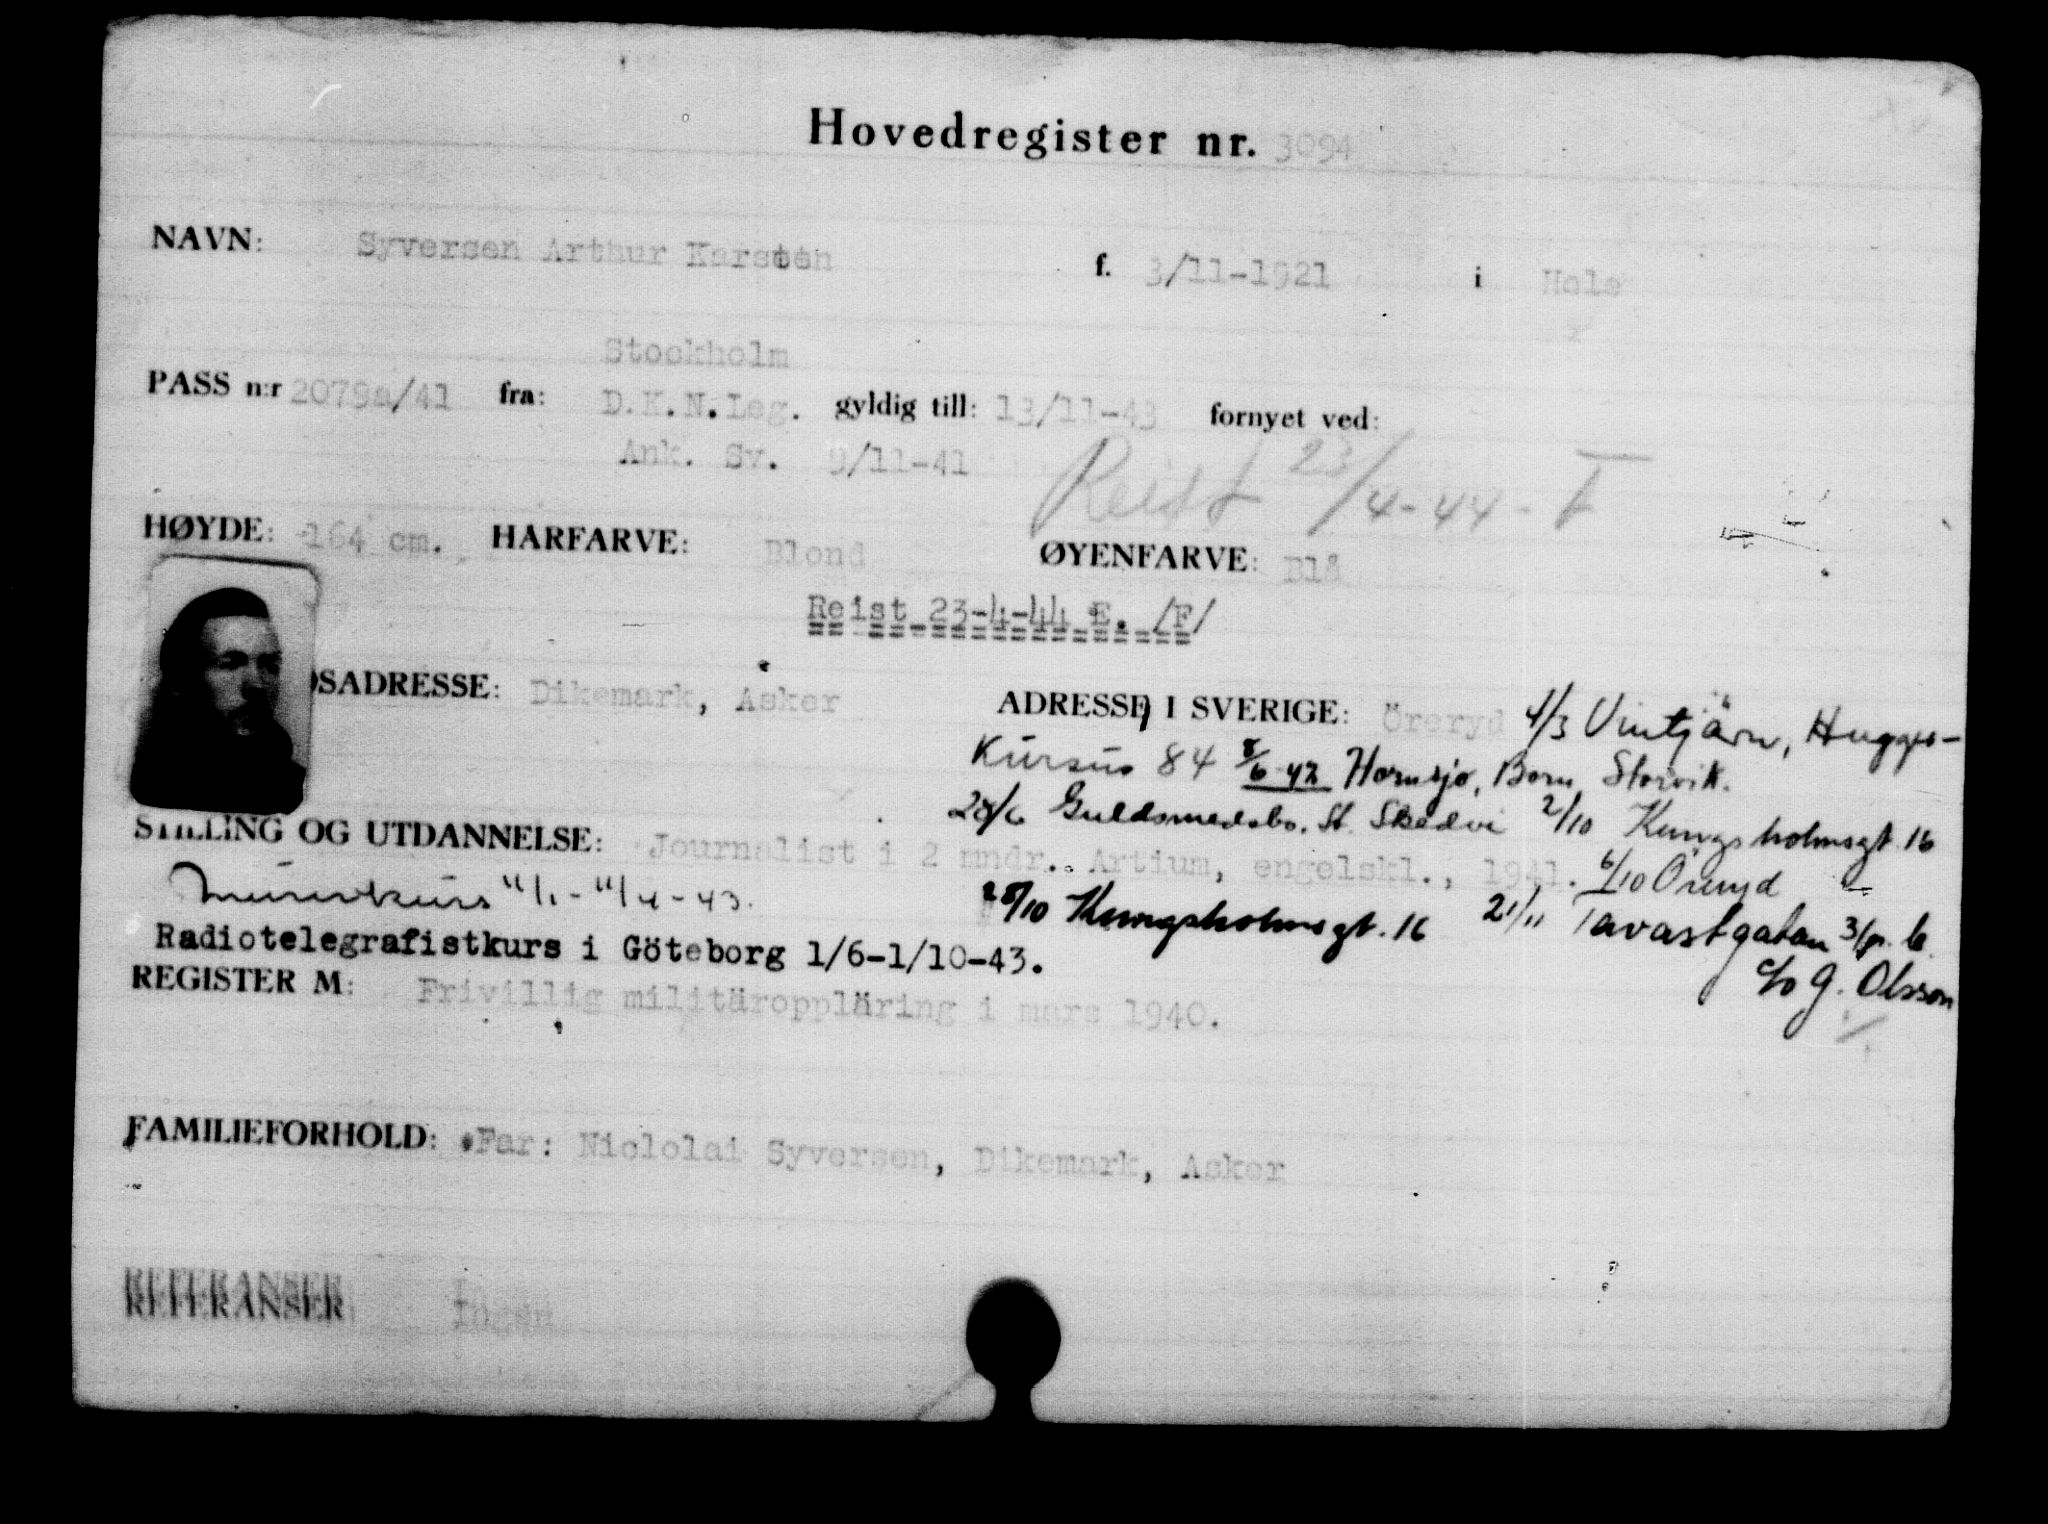 Hovedregister nr. 3094
NAVN: Syversen Arthur Karsten f. 3/11-1921 i Hole
Stockholm
PASS n:r 2079a/41 fra: D.K.N.Leg. gyldig till: 13/11-43 fornyet ved:
Ank. Sv. 9/11-41
Reist 23/4-44 - F
HØYDE: 164 cm. HARFARVE: Blond ØYENFARVE: Blå
Reist 23-4-44 E. /F/
OSADRESSE: Dikemark, Asker ADRESSE I SVERIGE: Öreryd 4/3 Vintjärn, Hugges-
Kursus 84 8/6-42 Hornsjø, Born, Storvik.
28/6 Guldsmedsbo, St. Skedvi 2/10 Kungsholmsgt 16
STILLING OG UTDANNELSE: Journalist i 2 mndr. Artium, engelskl., 1941. 6/10 Öreryd
11/1-11/4-43. 28/10 Kungsholmsgt. 16 21/11 Tavastgatan
Radiotelegrafistkurs i Göteborg 1/6-1/10-43.
c/o G. Olsson
REGISTER M: Frivillig militäroppläring i mars 1940.
FAMILIEFORHOLD: Far: Niclolai Syversen, Dikemark, Asker
REFERANSER
REFERANSER Ingen